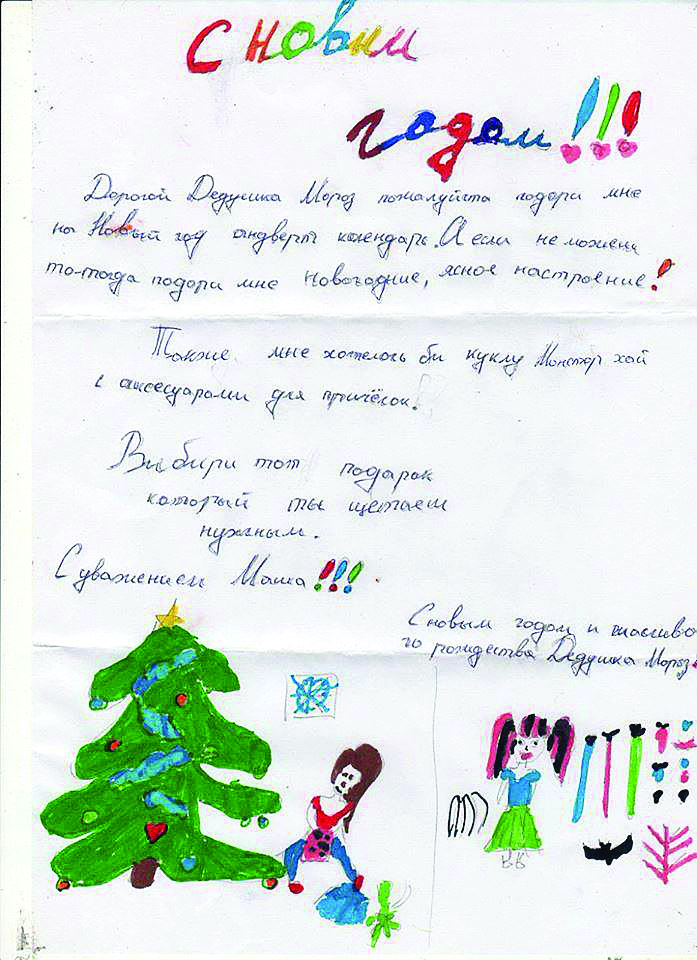 С новим
годом!!!
Дорогой Дедушка Мороз пожалуйста подори мне
на Новый год андверт календарь. А если не можеш
то-тогда подори мне новогодние, ясное настроение!
Также мне хотелось би куклу Монстер хай
с аксесуарами для причёсок!
Выбири тот подарок
который ты щетаеш
нужным.
С уважением Маша!!!
С новым годом и щасливо
го рождества Дедушка Мороз!